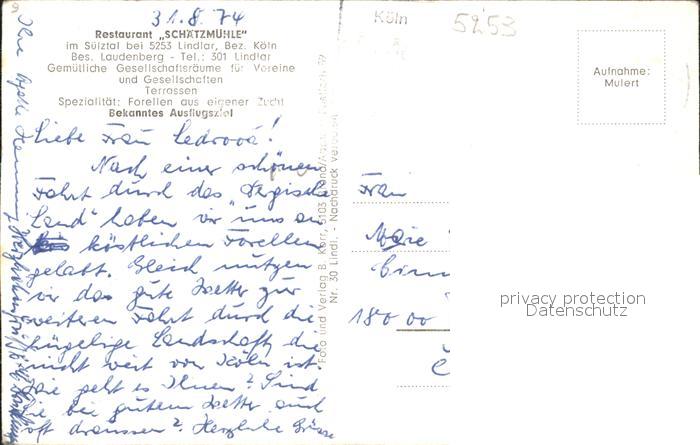 31.8.74
Restaurant „SCHATZMÜHLE"
im Sülztal bei 5253 Lindlar, Bez. Köln
Bes. Laudenberg - Tel.: 301 Lindlar
Gemütliche Gesellschaftsräume für Vereine
und Gesellschaften
Terrassen
Spezialität: Forellen aus eigener Zucht
Bekanntes Ausflugsziel
Liebe Frau
Nach einer schönen
Fahrt durch das „Bergische
Land" haben wir uns an
köstlichen Forellen
gelabt. Gleich nutzen
wir das gute Wetter zur
weiteren Fahrt durch die
hügelige Landschaft, die
nicht weit von Köln ist.
Wie geht es Ihnen? Sind
Sie bei gutem Wetter auch
oft draussen? Herzliche Grüsse
Ihre
Foto und Verlag B. Korr, 5103
Nr. 30 Lindl. - Nachdruck verboten
Köln
5253
Aufnahme:
Mulert
Frau
180 00
privacy protection
Datenschutz